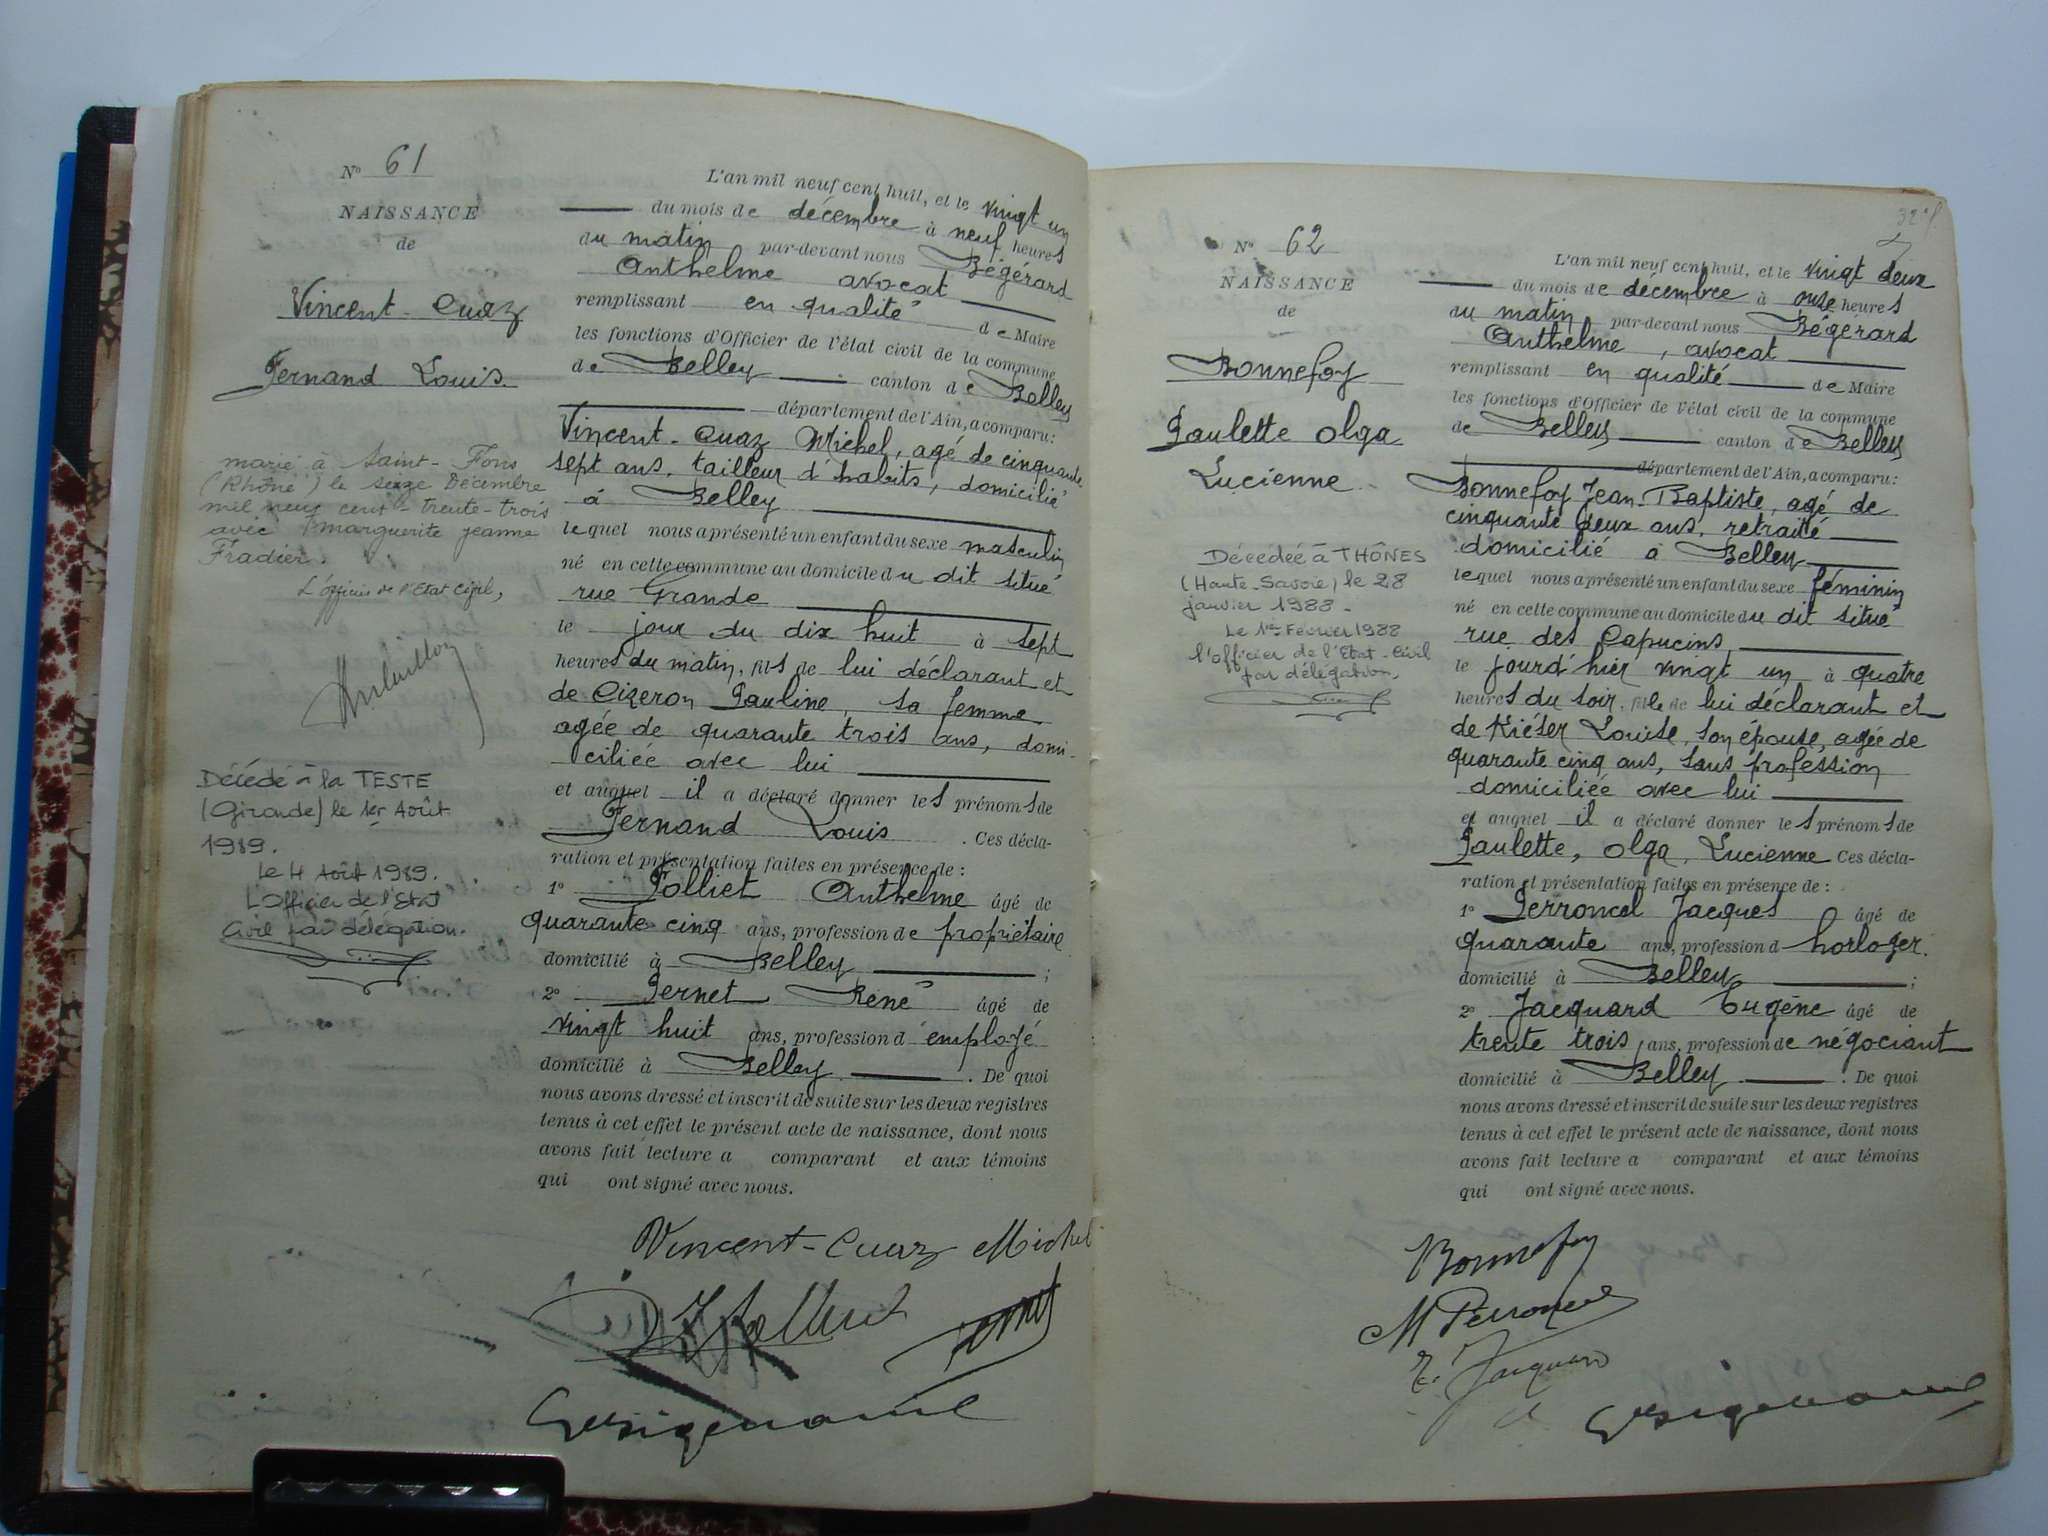 N° 61
NAISSANCE
de
Vincent-Cuaz
Fernand Louis
marié à Saint-Fons
(Rhône) le seize Décembre
mil neuf cent-trente-trois
avec Marguerite Jeanne
Fradier.
L'officier de l'Etat Civil,
Décédé à la TESTE
(Gironde) le 1er Août
1989.
Le 4 Août 1989.
L'Officier de l'Etat
Civil par délégation.
L'an mil neuf cent huit, et le vingt un
du mois de décembre à neuf heures
du matin par-devant nous Bégérard
Anthelme avocat
remplissant en qualité de Maire
les fonctions d'Officier de l'état civil de la commune
de Belley canton de Belley
département de l'Ain, a comparu:
Vincent-Cuaz Michel, agé de cinquante
sept ans, tailleur d'habits, domicilié
à Belley
lequel nous a présenté un enfant du sexe masculin
né en cette commune au domicile du dit situé
rue Grande
le jour du dix huit à sept
heures du matin, fils de lui déclarant et
de Cizeron Pauline, sa femme
agée de quarante trois ans, domi-
ciliée avec lui
et auquel il a déclaré donner les prénoms de
Fernand Louis. Ces décla-
ration et présentation faites en présence de :
1° Folliet Anthelme âgé de
quarante cinq ans, profession de propriétaire
domicilié à Belley ;
2° Pernet René âgé de
vingt huit ans, profession d'employé
domicilié à Belley. De quoi
nous avons dressé et inscrit de suite sur les deux registres
tenus à cet effet le présent acte de naissance, dont nous
avons fait lecture a comparant et aux témoins
qui ont signé avec nous.
Vincent-Cuaz Michel
N° 62
NAISSANCE
de
Bonnefoy
Paulette Olga
Lucienne
Décédée à THÔNES
(Haute-Savoie) le 28
janvier 1988.
Le 1er Février 1988
l'officier de l'Etat-Civil
par délégation,
L'an mil neuf cent huit, et le vingt deux
du mois de décembre à onze heures
du matin par-devant nous Bégérard
Anthelme, avocat
remplissant en qualité de Maire
les fonctions d'Officier de l'état civil de la commune
de Belley canton de Belley
département de l'Ain, a comparu:
Bonnefoy Jean-Baptiste, agé de
cinquante deux ans, retraité
domicilié à Belley
lequel nous a présenté un enfant du sexe féminin
né en cette commune au domicile du dit situé
rue des Capucins
le jourd'hier vingt un à quatre
heures du soir, fille de lui déclarant et
de Kiéser Louise, son épouse, agée de
quarante cinq ans, sans profession
domiciliée avec lui
et auquel il a déclaré donner les prénoms de
Paulette, Olga, Lucienne Ces décla-
ration et présentation faites en présence de :
1° Perroncel Jacques âgé de
quarante ans, profession d horloger.
domicilié à Belley ;
2° Jacquard Eugène âgé de
trente trois ans, profession de négociant
domicilié à Belley. De quoi
nous avons dressé et inscrit de suite sur les deux registres
tenus à cet effet le présent acte de naissance, dont nous
avons fait lecture a comparant et aux témoins
qui ont signé avec nous.
Bonnefoy
M Perroncel
E. Jacquard